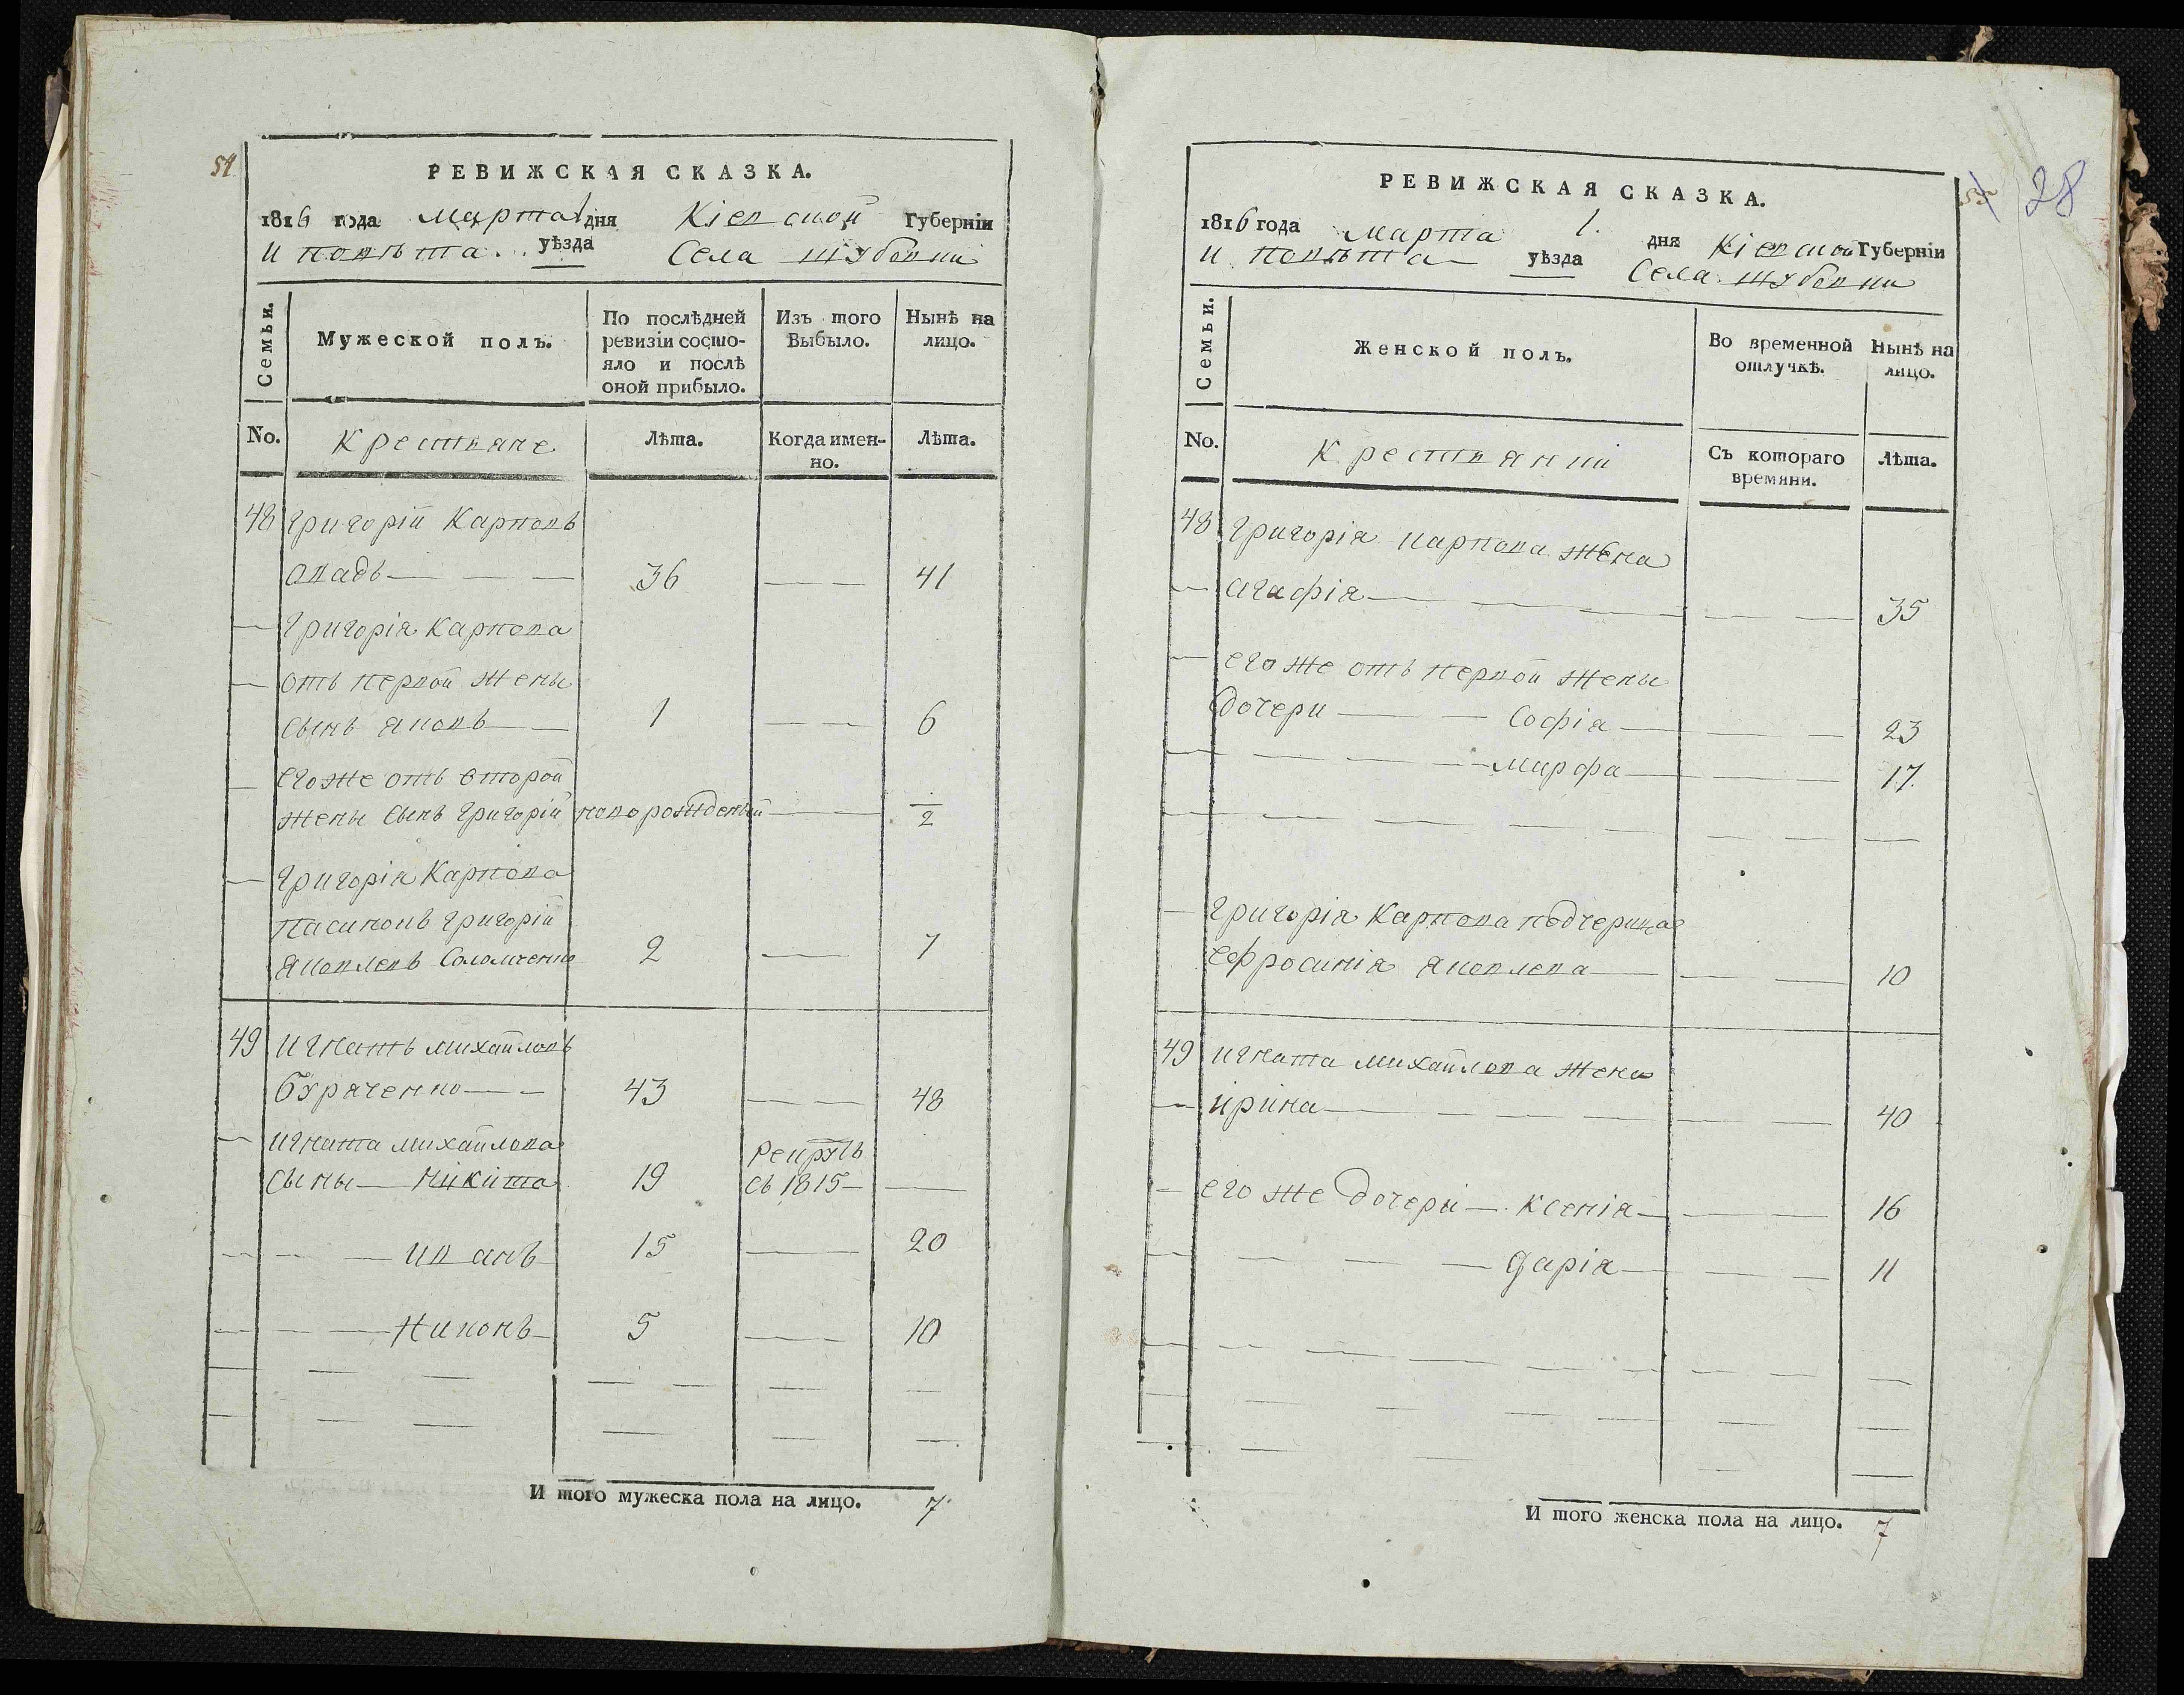 54
РЕВИЖСКАЯ СКАЗКА.
1816 года марта 1 дня Кіевской Губерніи
И повѣта уѣзда Села Шубовки
Семьи.
Мужеской полъ.
По послѣдней ревизіи состо-
яло и послѣ оной прибыло.
Изъ того Выбыло.
Нынѣ на лицо.
No.
Крестьяне
Лѣта.
Когда имен-
но.
Лѣта.
48 Григорій Карповъ
36 41
Григорія Карпова
отъ первой жены
сынъ Яковъ 1 6
его же отъ второй
жены сынъ Григорій новорожденый 1/2
Григорія Карпова
пасинокъ Григорій
Яковлевъ 2 7
49 Игнатъ Михайловъ
Буряченко 43 48
Игната Михайлова рекрутъ
сыны Никита 19 съ 1815
Иванъ 15 20
Никонъ 5 10
И того мужеска пола на лицо. 7
28
РЕВИЖСКАЯ СКАЗКА.
1816 года марта 1. дня Кіевской Губерніи
И повѣта уѣзда Села Шубовки
Семьи.
Женской полъ.
Во временной отлучкѣ.
Нынѣ на лицо.
No.
Крестьянки
Съ котораго времяни.
Лѣта.
48 Григорія Карпова жена
Агафія 35
его же отъ первой жены
дочери Софія 23
Марфа 17.
Григорія Карпова подчерица
Ефросинія Яковлева 10
49 Игната Михайлова жена
Ирина 40
его же дочери Ксенія 16
Дарія 11
И того женска пола на лицо. 7